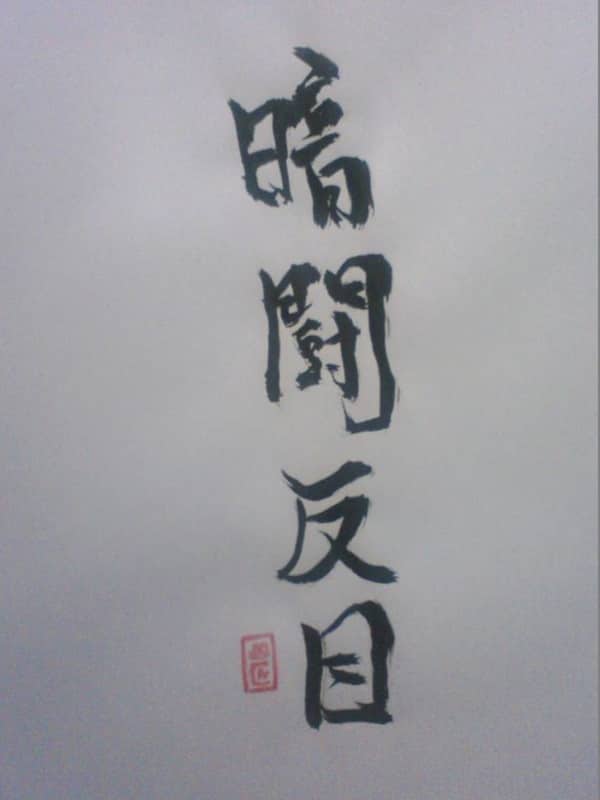 暗闘反目